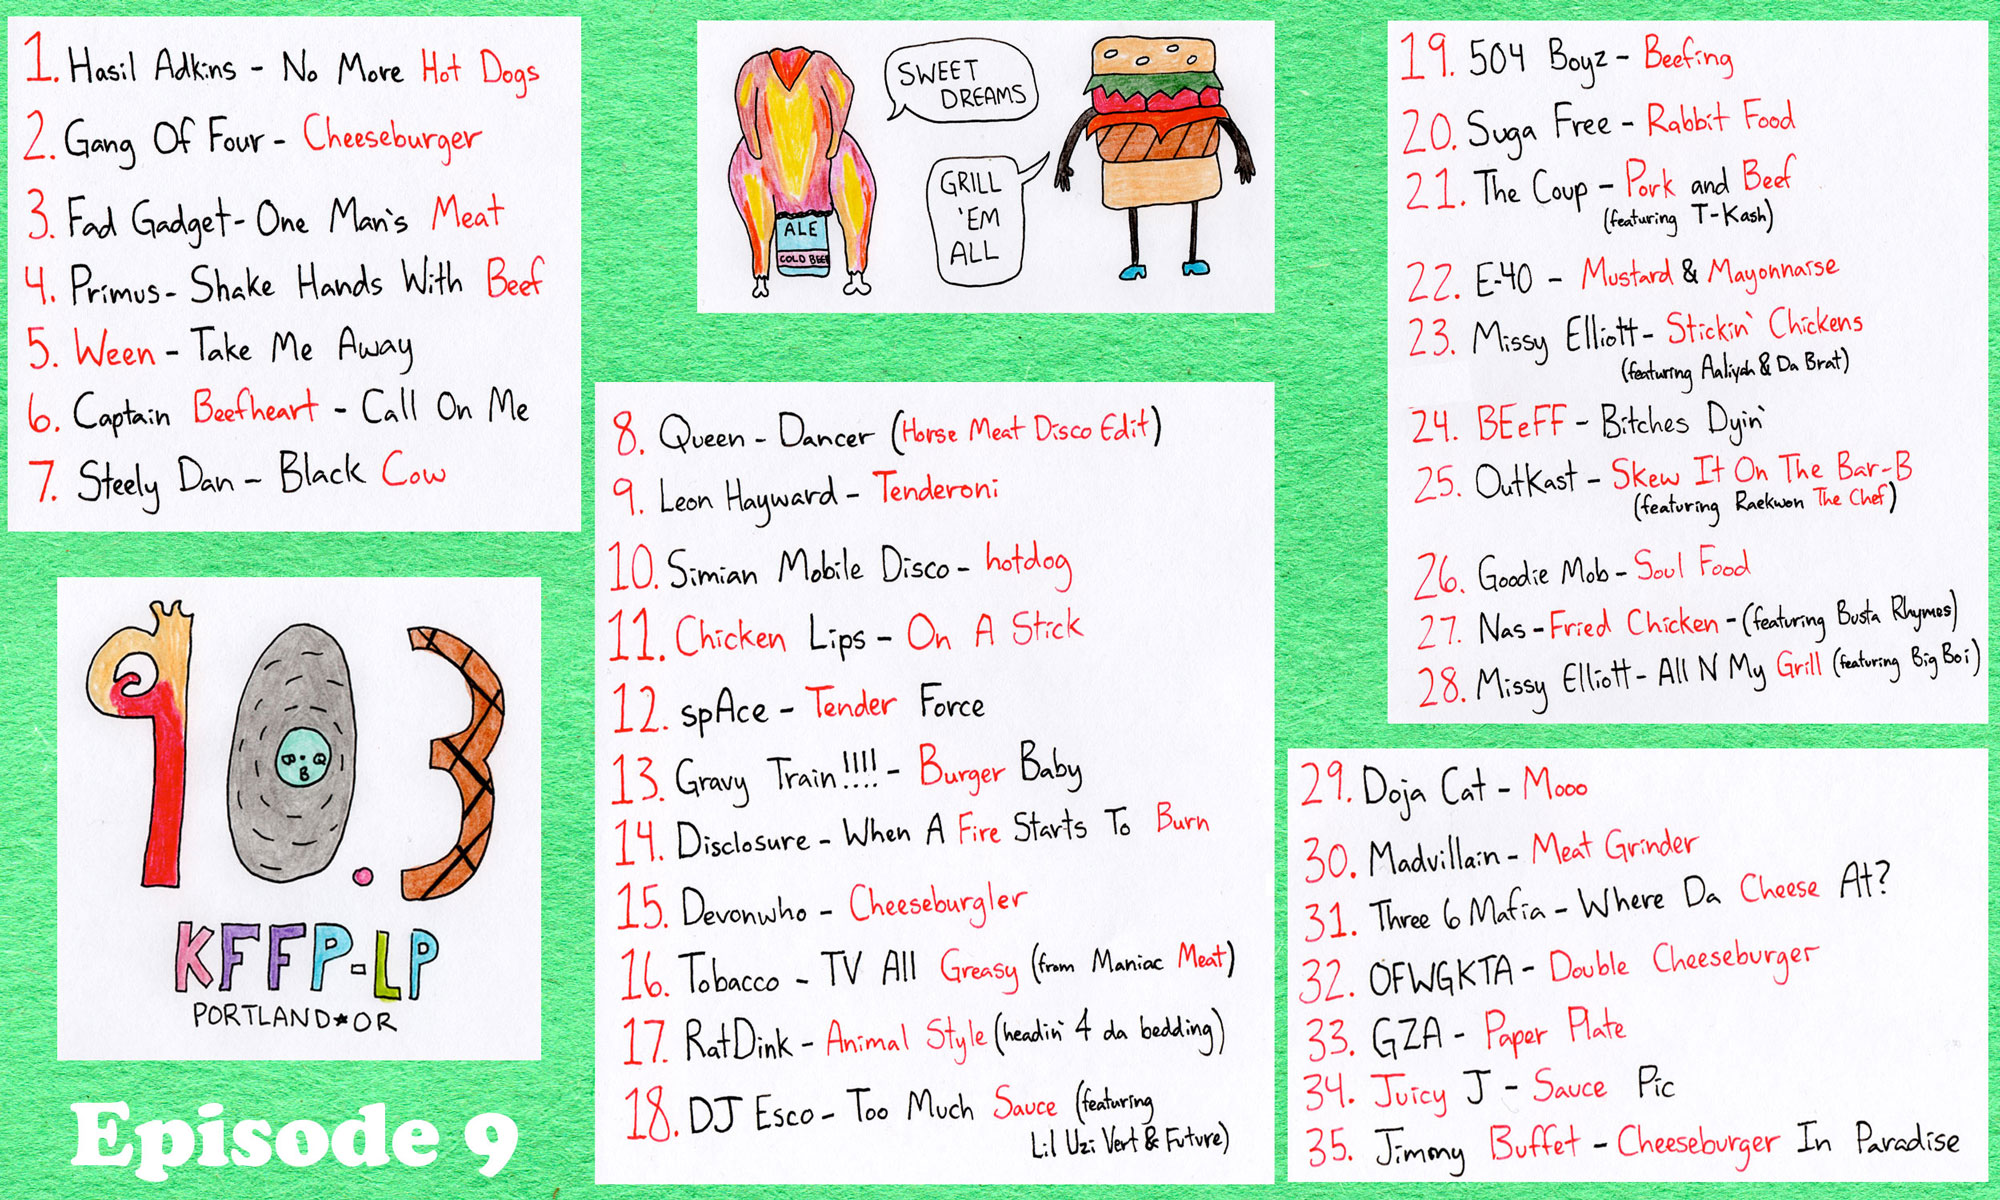 1. Hasil Adkins - No More Hot Dogs
2. Gang Of Four - Cheeseburger
3. Fad Gadget - One Man's Meat
4. Primus - Shake Hands With Beef
5. Ween - Take Me Away
6. Captain Beefheart - Call On Me
7. Steely Dan - Black Cow
SWEET
DREAMS
GRILL
'EM
ALL
ALE
COLD BEER
90.3
B·B·Q
KFFP-LP
PORTLAND★OR
Episode 9
8. Queen - Dancer (Horse Meat Disco Edit)
9. Leon Hayward - Tenderoni
10. Simian Mobile Disco - hotdog
11. Chicken Lips - On A Stick
12. spAce - Tender Force
13. Gravy Train!!!! - Burger Baby
14. Disclosure - When A Fire Starts To Burn
15. Devonwho - Cheeseburgler
16. Tobacco - TV All Greasy (from Maniac Meat)
17. RatDink - Animal Style (headin' 4 da bedding)
18. DJ Esco - Too Much Sauce (featuring
Lil Uzi Vert & Future)
19. 504 Boyz - Beefing
20. Suga Free - Rabbit Food
21. The Coup - Pork and Beef
(featuring T-Kash)
22. E-40 - Mustard & Mayonnaise
23. Missy Elliott - Stickin' Chickens
(featuring Aaliyah & Da Brat)
24. BEeFF - Bitches Dyin'
25. OutKast - Skew It On The Bar-B
(featuring Raekwon The Chef)
26. Goodie Mob - Soul Food
27. Nas - Fried Chicken - (featuring Busta Rhymes)
28. Missy Elliott - All N My Grill (featuring Big Boi)
29. Doja Cat - Mooo
30. Madvillain - Meat Grinder
31. Three 6 Mafia - Where Da Cheese At?
32. OFWGKTA - Double Cheeseburger
33. GZA - Paper Plate
34. Juicy J - Sauce Pic
35. Jimmy Buffet - Cheeseburger In Paradise